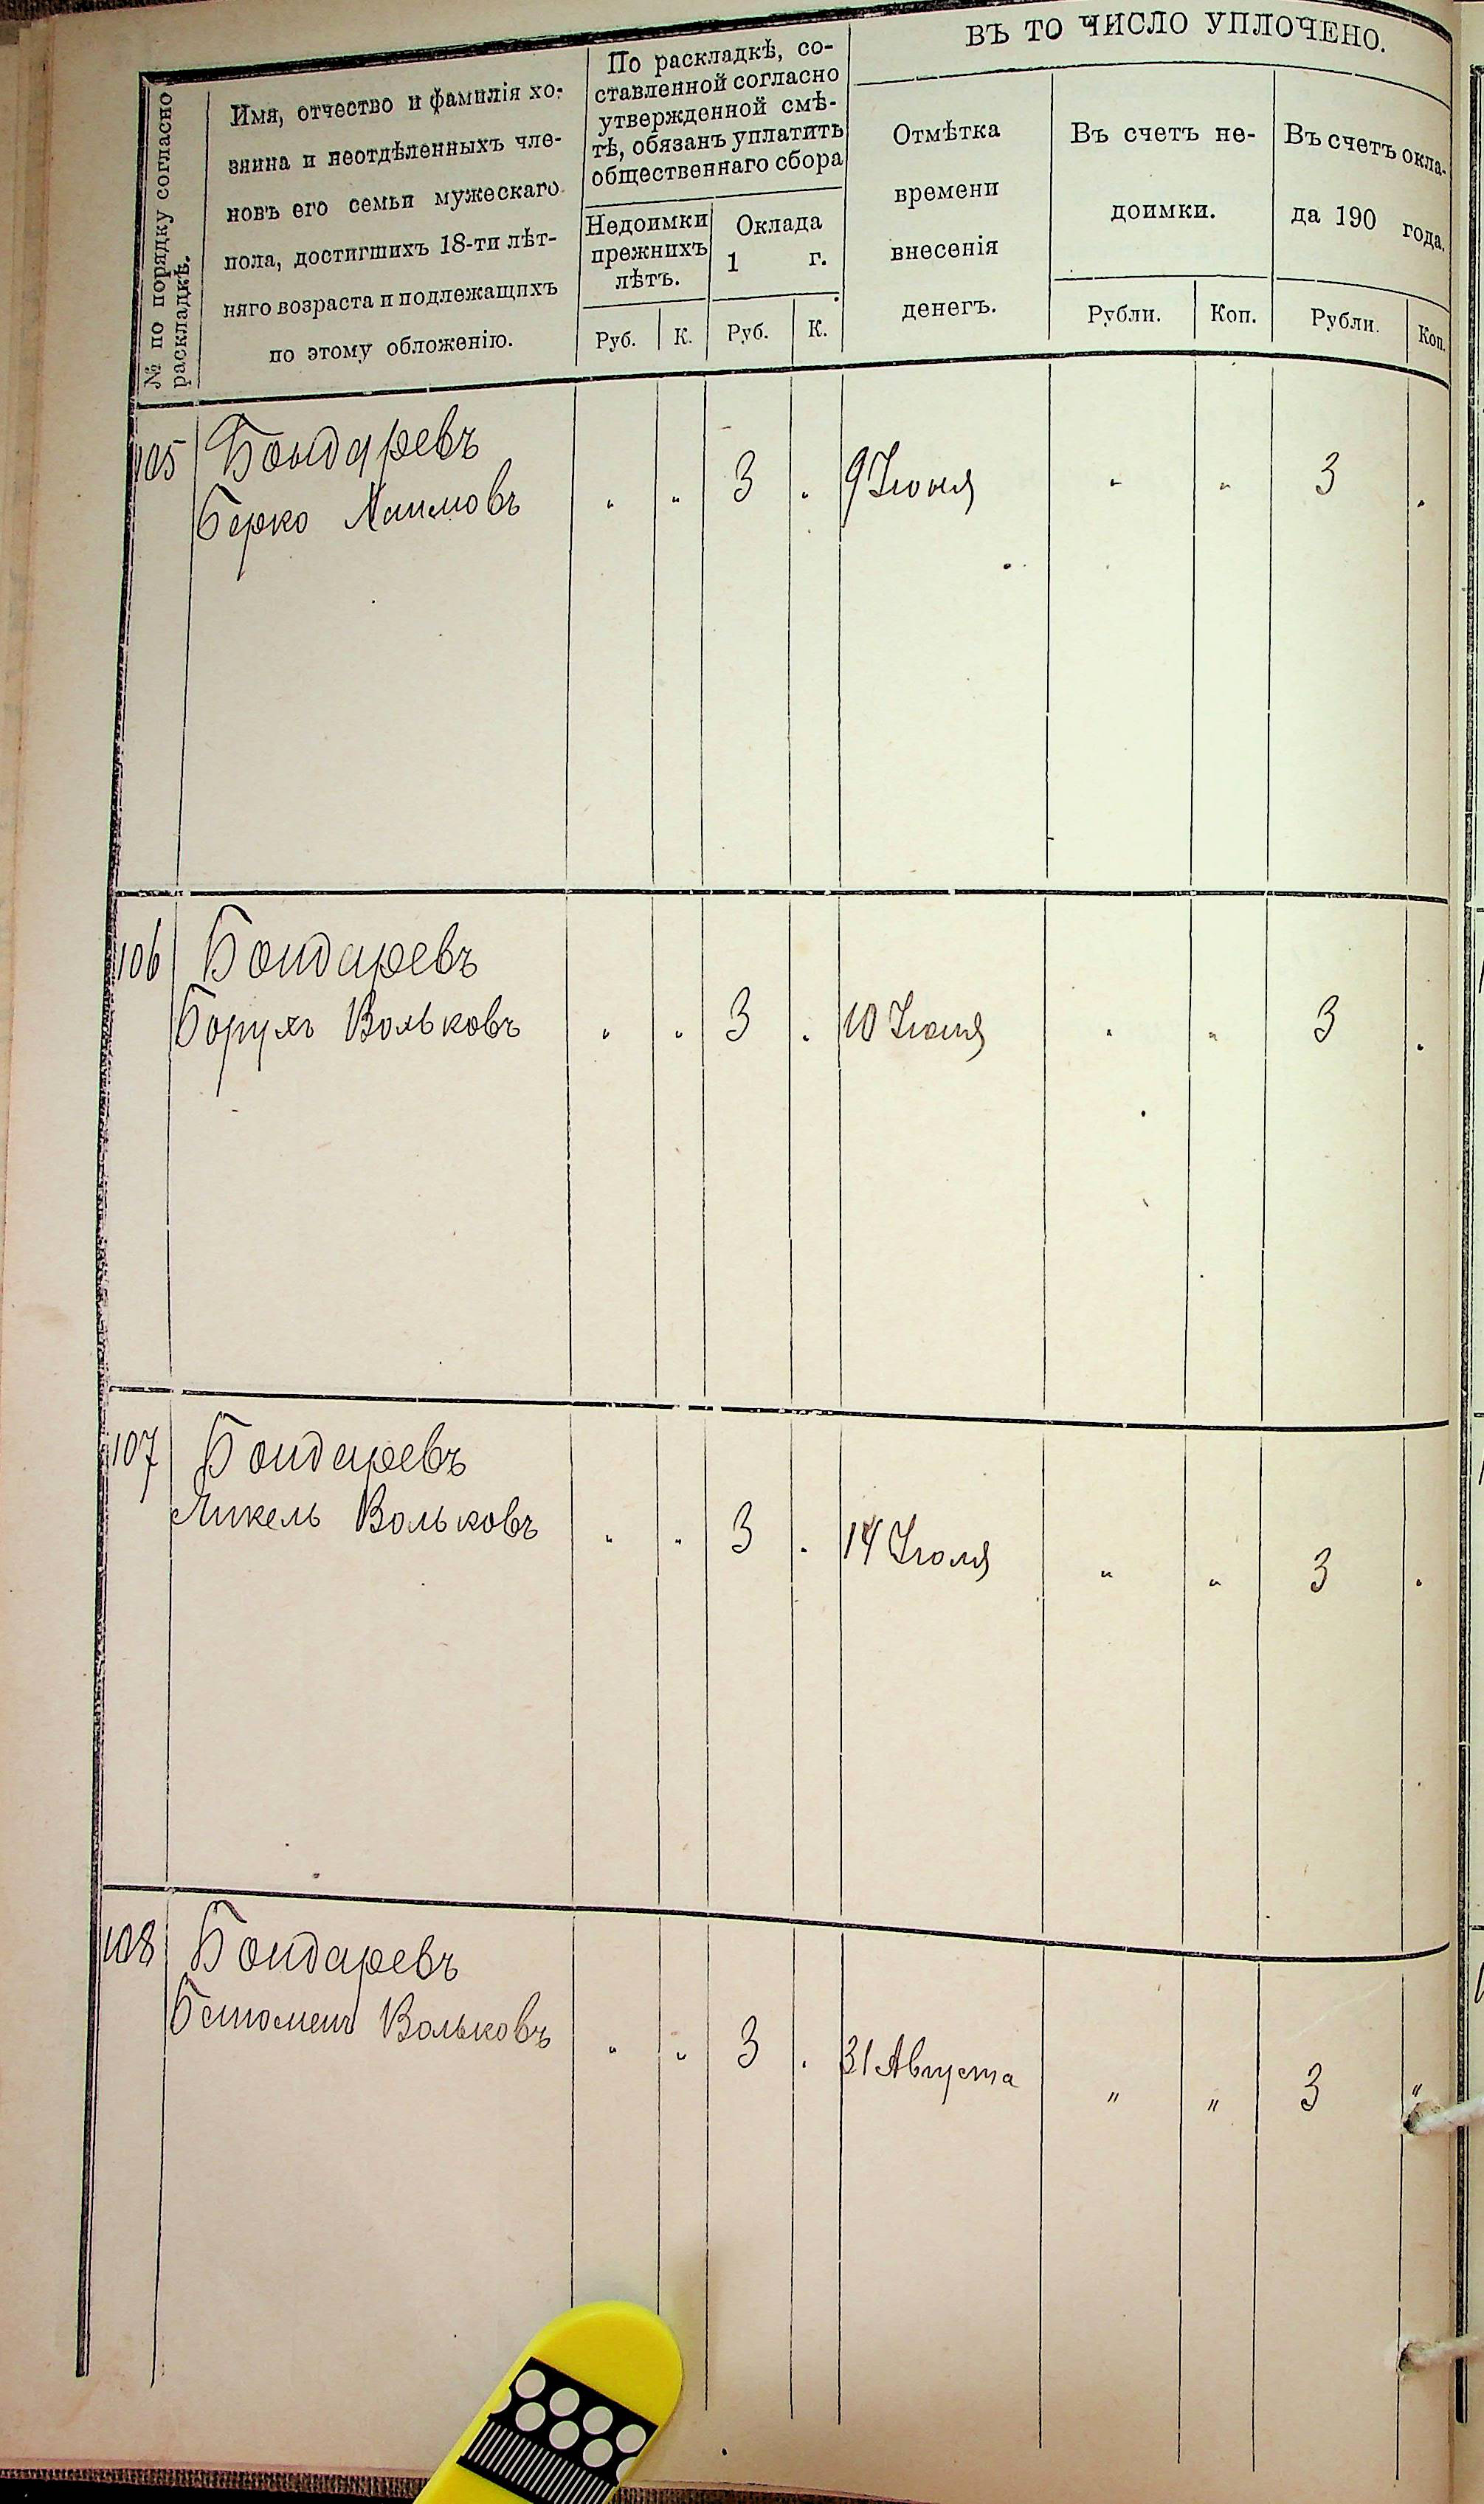 № по порядку согласно
раскладкѣ.
Имя, отчество и фамилія хо-
зяина и неотдѣленныхъ чле-
новъ его семьи мужескаго
пола, достигшихъ 18-ти лѣт-
няго возраста и подлежащихъ
по этому обложенію.
По раскладкѣ, со-
ставленной согласно
утвержденной смѣ-
тѣ, обязанъ уплатить
общественнаго сбора
Недоимки
прежнихъ
лѣтъ.
Оклада
1 г.
Руб. К. Руб. К.
ВЪ ТО ЧИСЛО УПЛОЧЕНО.
Отмѣтка
времени
внесенія
денегъ.
Въ счетъ не-
доимки.
Рубли. Коп.
Въ счетъ окла-
да 190 года.
Рубли. Коп.
105 Бондаревъ
Берко " " 3 . 9 Іюня " " 3 .
106 Бондаревъ
Борухъ Вольковъ " " 3 . 10 " " 3 .
107 Бондаревъ
Вольковъ " " 3 . 14 Іюля " " 3 .
108 Бондаревъ
Вольковъ " " 3 . 31 Августа " " 3 "